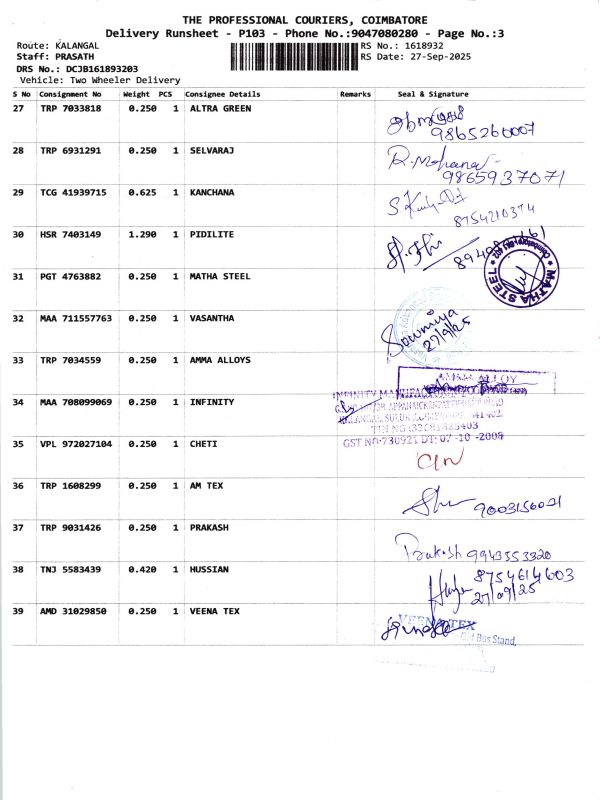 THE PROFESSIONAL COURIERS, COIMBATORE
Delivery Runsheet - P103 - Phone No.:9047080280 - Page No.:3
Route: KALANGAL RS No.: 1618932
Staff: PRASATH RS Date: 27-Sep-2025
DRS No.: DCJB161893203
Vehicle: Two Wheeler Delivery
S No Consignment No Weight PCS Consignee Details Remarks Seal & Signature
27 TRP 7033818 0.250 1 ALTRA GREEN
9865260007
28 TRP 6931291 0.250 1 SELVARAJ R. Mohana
9865937071
29 TCG 41939715 0.625 1 KANCHANA
8754210374
30 HSR 7403149 1.290 1 PIDILITE
31 PGT 4763882 0.250 1 MATHA STEEL MATHA STEEL
32 MAA 711557763 0.250 1 VASANTHA Sowmiya
27/9/25
33 TRP 7034559 0.250 1 AMMA ALLOYS ALLOY
34 MAA 708099069 0.250 1 INFINITY INFINITY
35 VPL 972027104 0.250 1 CHETI GST NO:730921 DT: 07-10-2005
36 TRP 1608299 0.250 1 AM TEX
9003156021
37 TRP 9031426 0.250 1 PRAKASH Prakash 9943553320
38 TNJ 5583439 0.420 1 HUSSIAN 8754614603
27/09/25
39 AMD 31029850 0.250 1 VEENA TEX VEENA TEX
Old Bus Stand,